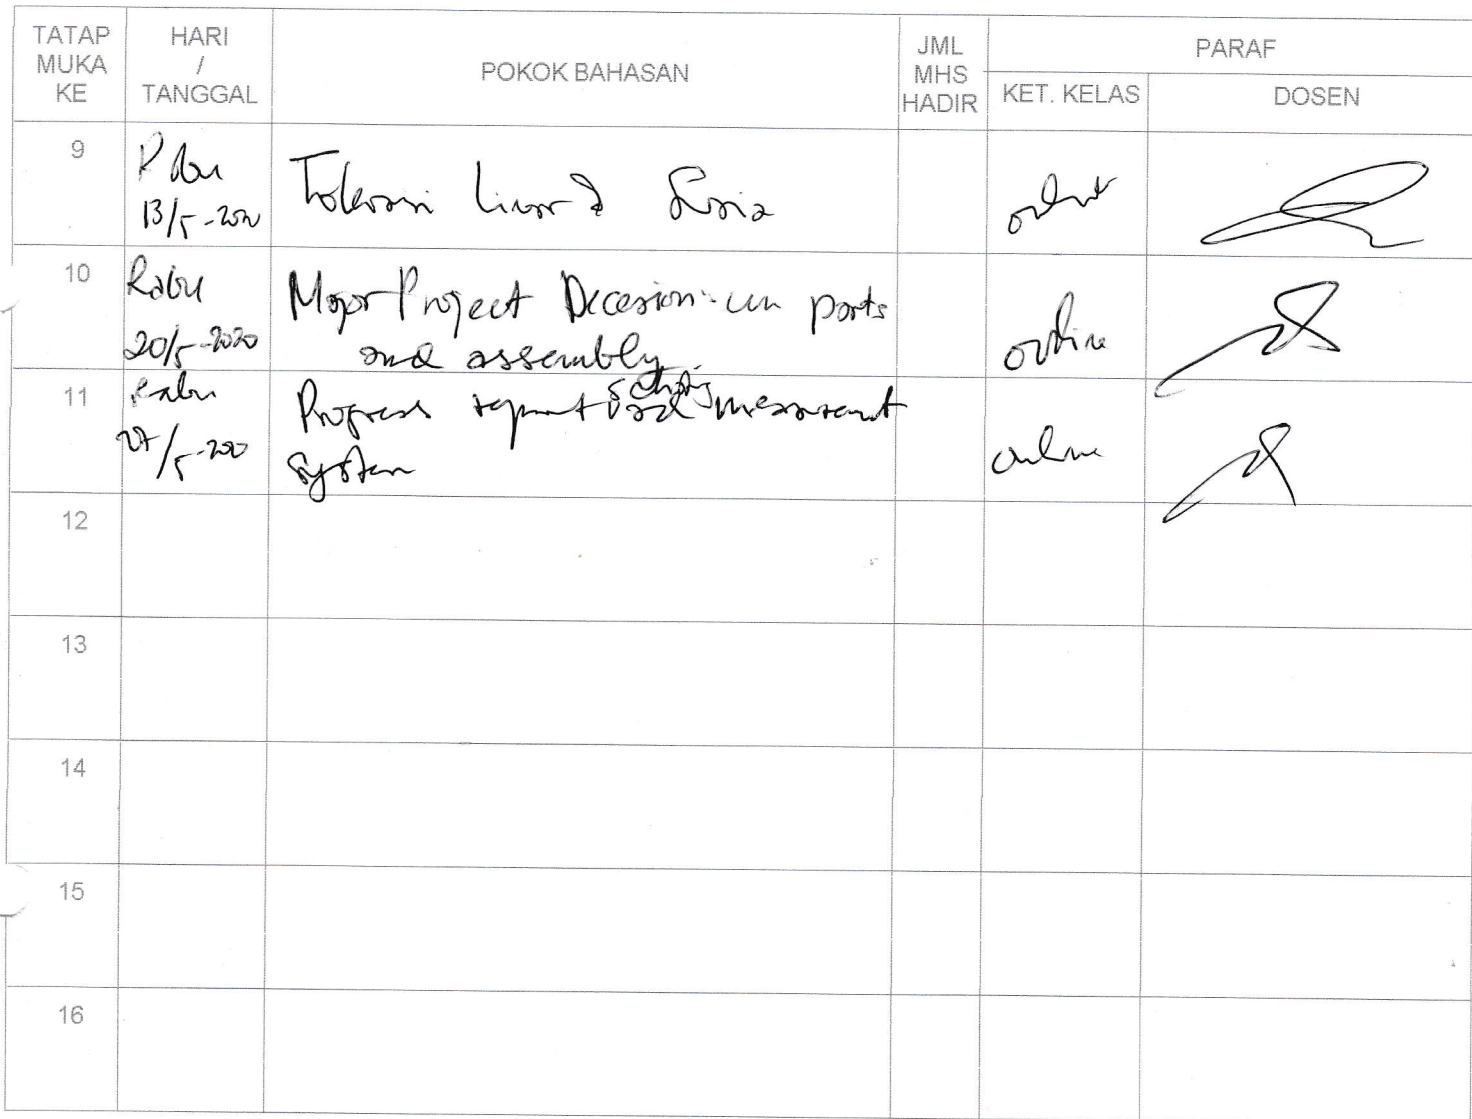 TATAP MUKA KE
HARI / TANGGAL
POKOK BAHASAN
JML MHS HADIR
PARAF
KET. KELAS
DOSEN
9
Rabu
13/5-2020
Toleransi Linear &
10
Rabu
20/5-2020
Major Project Decesion un parts
and assembly
online
11
Rabu
27/5-2020
Progress report
system
online
12
13
14
15
16